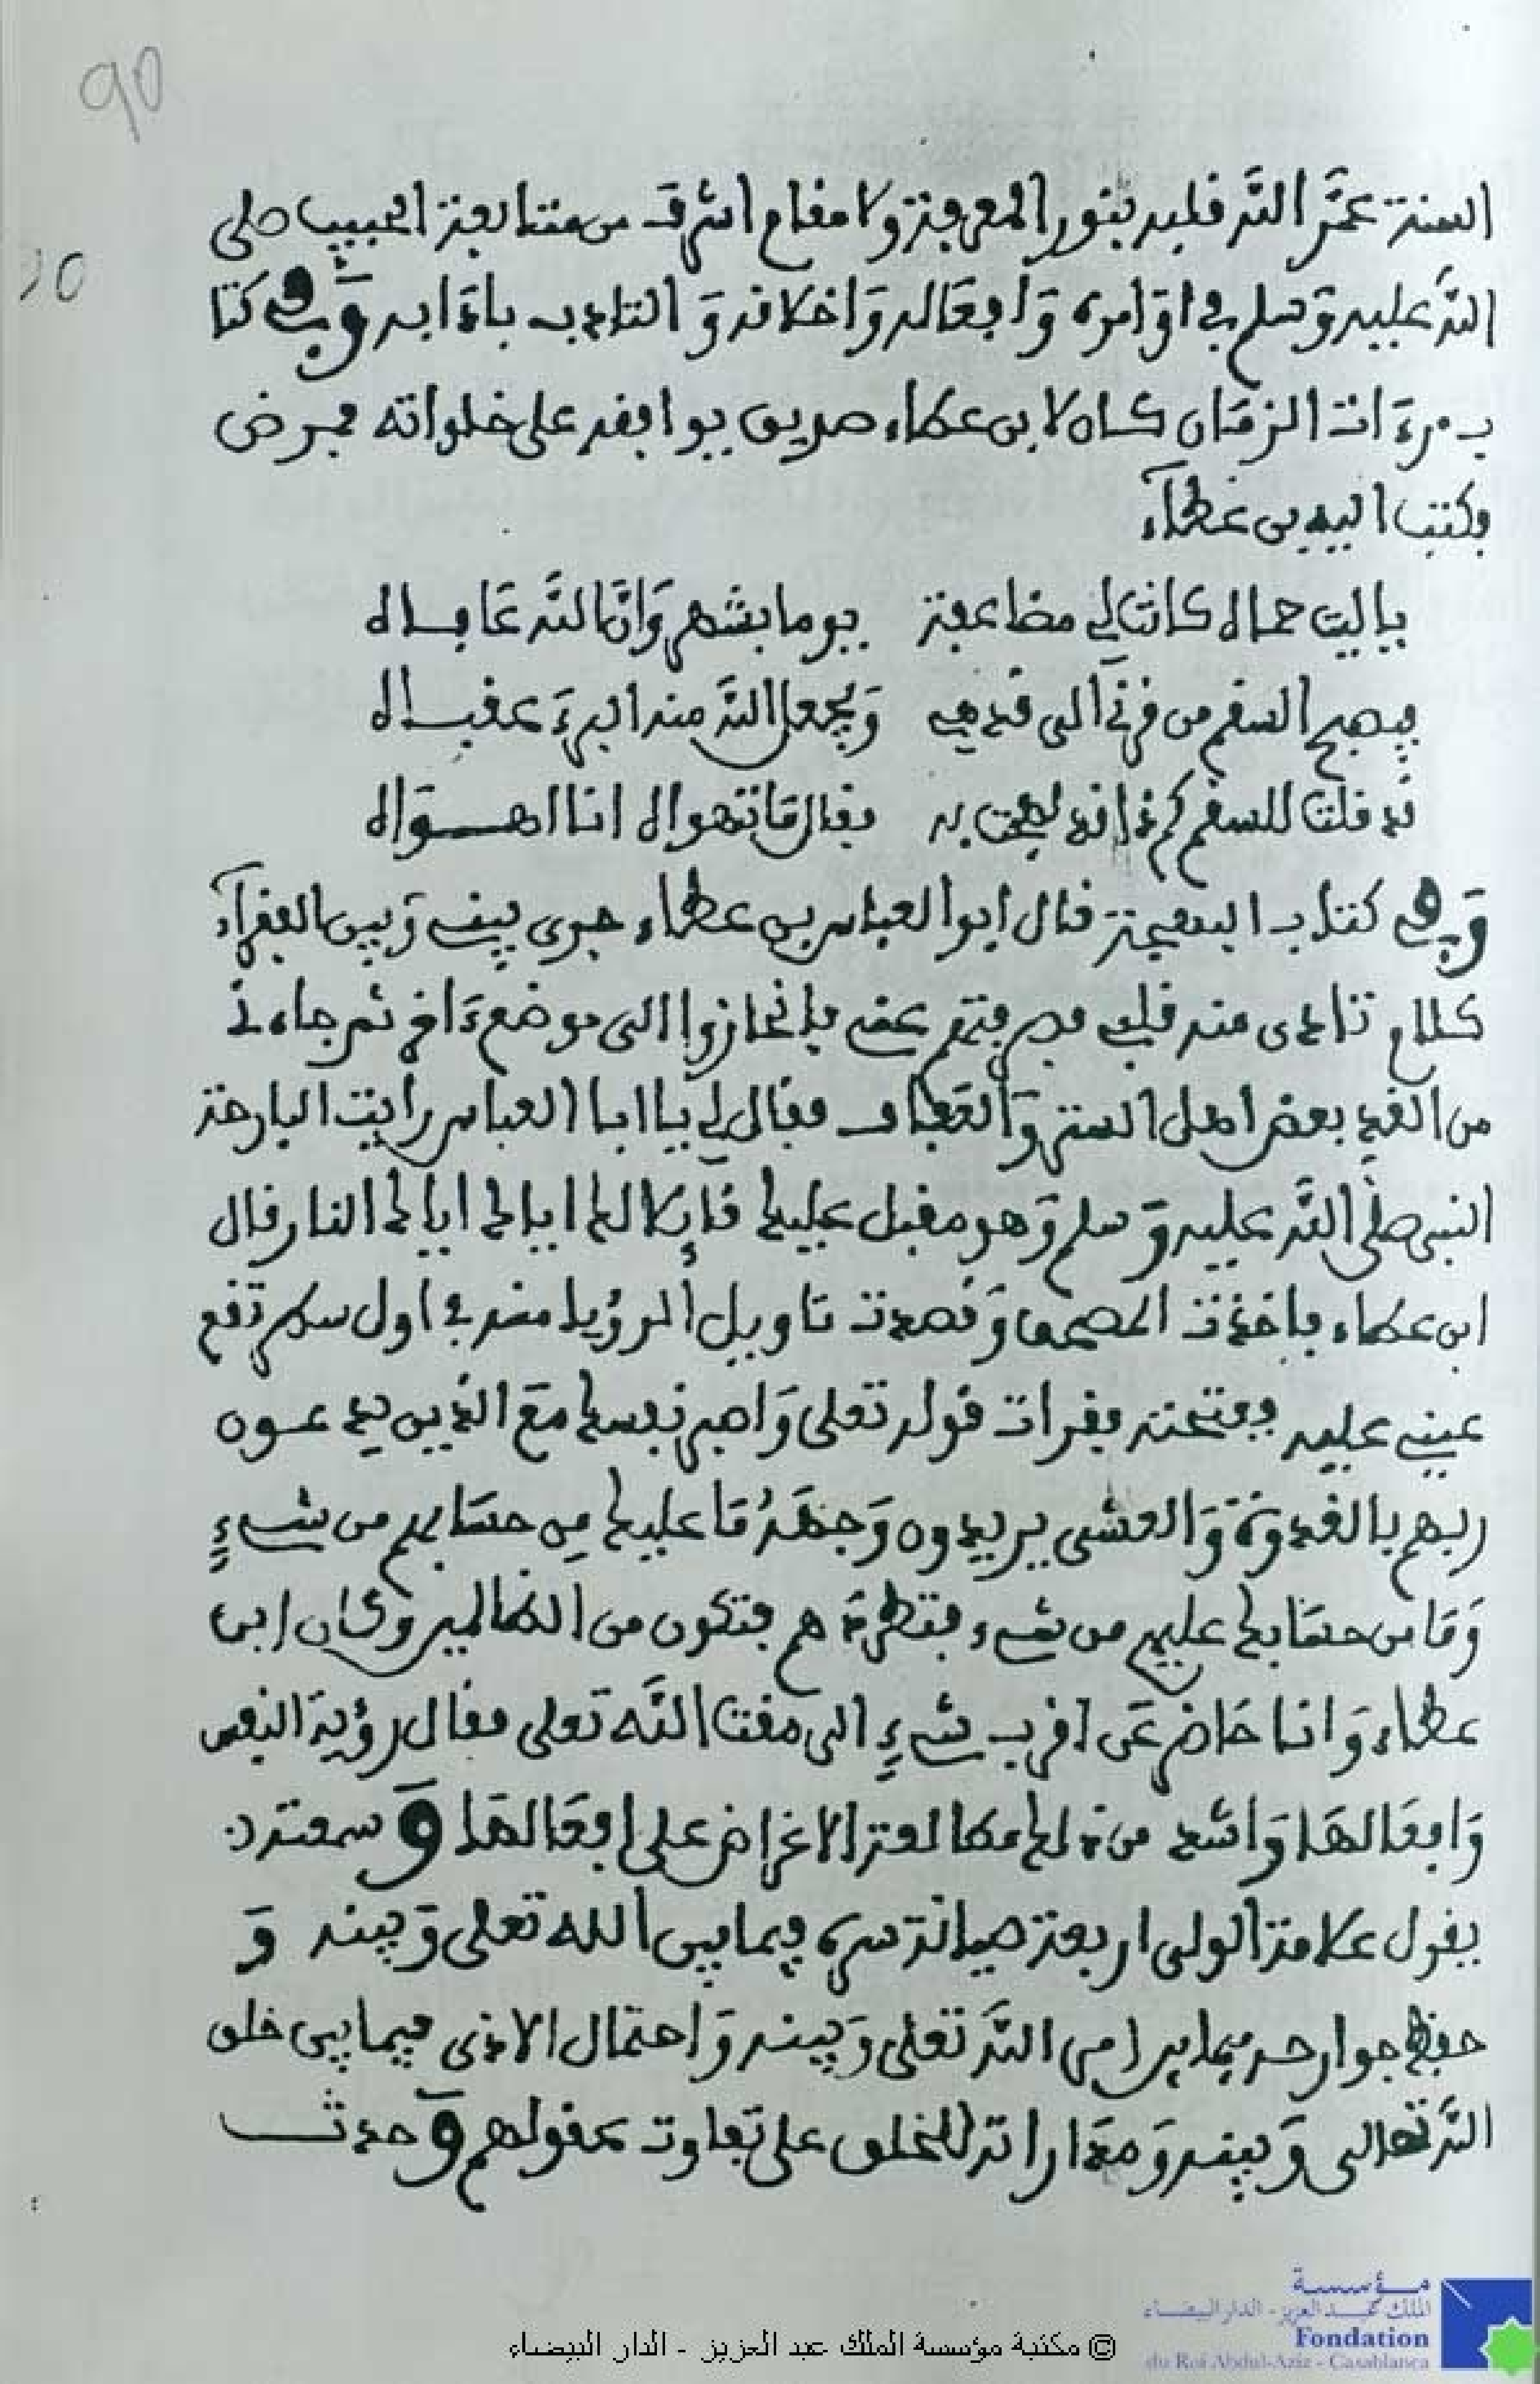 90
السنة عمّر الله قلبه بنور المعرفة ولا مقام اشرف من متابعة الحبيب صلى
الله عليه وسلم في اوامره وافعاله واخلاقه والتادب بادابه وفي كتا
ب مرءات الزمان كان لابن عطاء صديق يوافقه على خلواته فمرض
فكتب اليه بن عطاء
ياليت حماك كانت لي مضاعفة يوما بشهر وان الله عافاك
فيصبح السقم من الى قدمي ويجعل الله منه البرء عقباك
قد قلت للسقم كم ذا قد لهجت به فقال ما تهواك انا اهواك
وفي كتاب النصيحة قال ابوا العباس بن عطاء جرى بيني وبين الفقراء
كلام تاذى منه قلبي عني فانحازوا الى موضع ءاخر ثم جاءني
من الغد بعض اهل الستر والعفاف فقال لي يا ابا العباس رايت البارحة
النبي صلى الله عليه وسلم وهو مقبل عليك قائلا لك اياك اياك النار قال
ابن عطاء فاخذت المصحف وقصدت تاويل الرؤيا منه في اول سطر تقع
عيني عليه ففتحته فقرات قوله تعلى واصبر نفسك مع الذين يدعون
ربهم بالغدوة والعشي يريدون وجهه ما عليك من حسابهم من شيء
وما من حسابك عليهم من شيء فتطردهم فتكون من الظالمين وكان ابن
عطاء وانا حاضر عن اقرب شيء الى مقت الله تعلى فقال رؤية النفس
وافعالها واشد من ذلك مطالعة الاغراض على افعالها وسمعته
يقول علامة الولي اربعة صيانة سره فيما بين الله تعلى وبينه و
حفظ جوارحه فيما بين الله تعلى وبينه واحتمال الاذى فيما بين خلق
الله تعالى وبينه ومداراته للخلق على تفاوت عقولهم وحدث
© مكتبة مؤسسة الملك عبد العزيز - الدار البيضاء
مؤسسة
الملك عبد العزيز - الدار البيضاء
Fondation
du Roi Abdul-Aziz - Casablanca